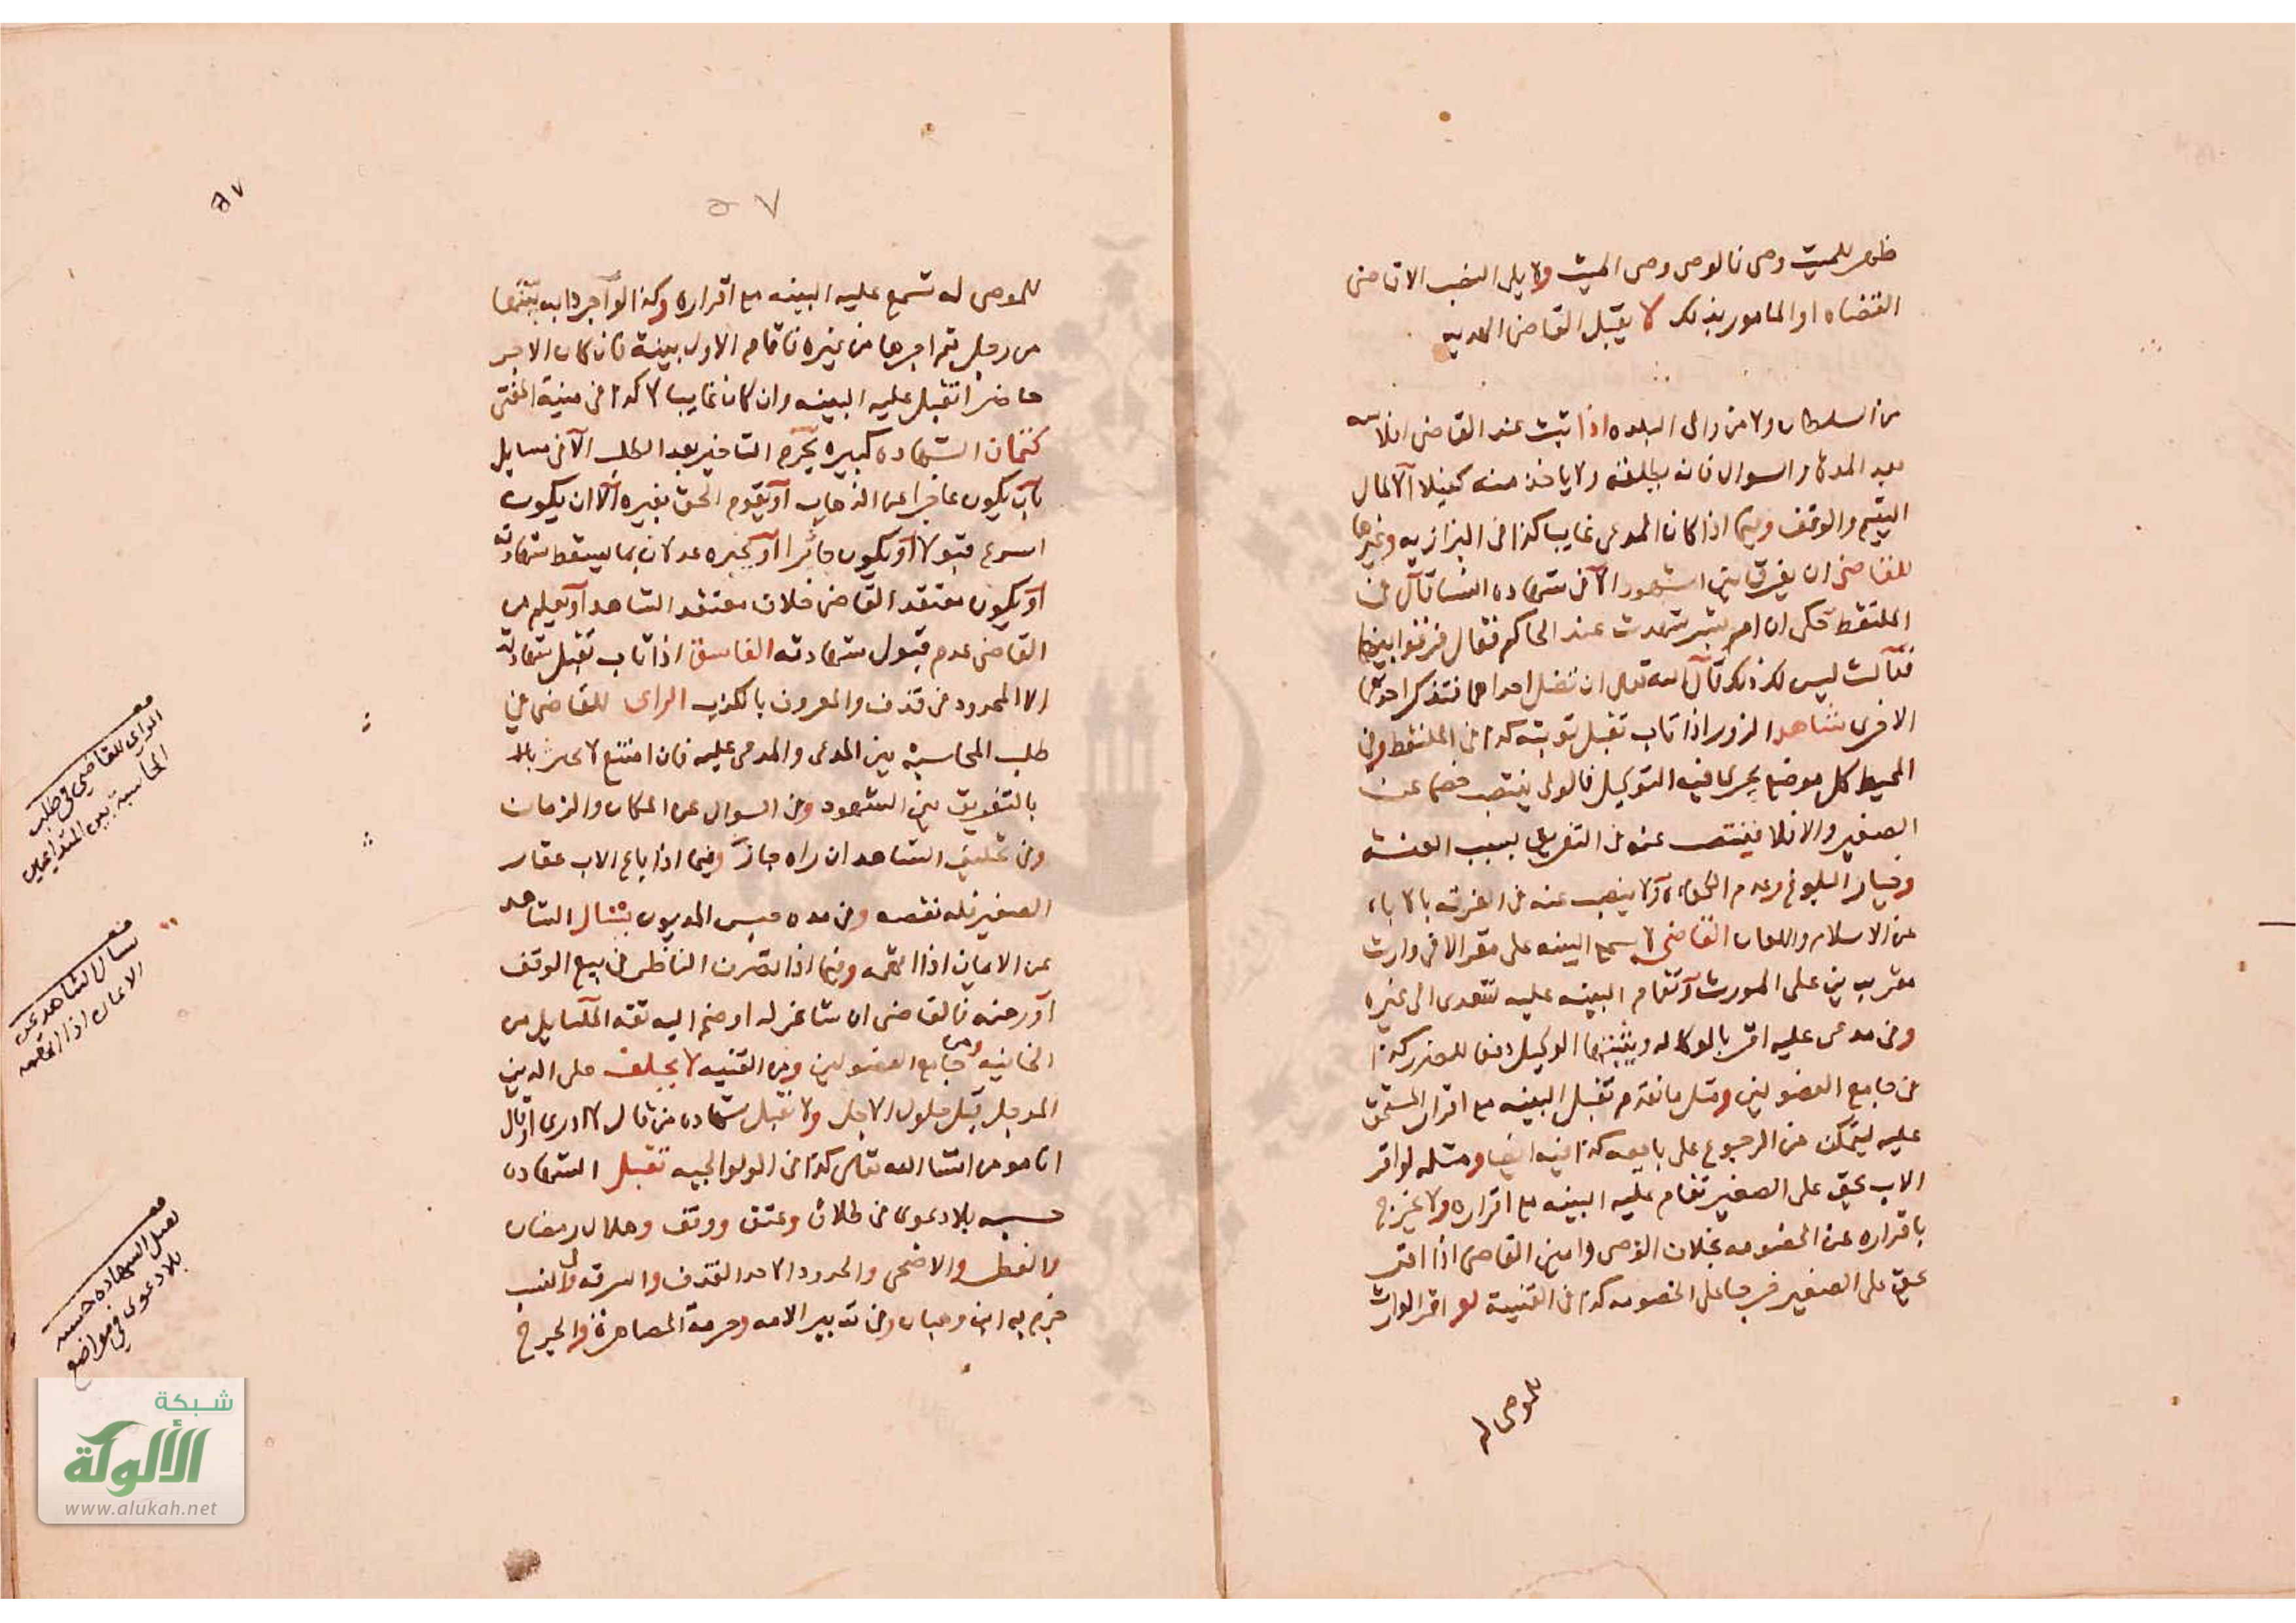 ظهر للميت وصى فالوصى وصى الميت ولا يلى النصب الا قاضى
القضاه او المامور بذلك لا يقبل القاضى الهديه
من السلطان ولا من والى البلده اذا ثبت عند القاضى افلاسه
بعد المدة والسوال فانه يطلقه ولا ياخذ منه كفيلا الا لمال
اليتيم والوقف وفيما اذا كان المدعى غايبا كذا فى البزازيه وغيرها
للقاضى ان يفرق بين الشهود الا فى شهاده النسا قال فى
الملتقط حكى ان ام بشر شهدت عند الحاكم فقال فرقوا بينهما
فقالت ليس لك ذلك قال الله تعالى ان تضل احداهما فتذكر احداهما
الاخرى شاهد الزور اذا تاب تقبل توبته كذا فى الملتقط وفى
المحيط كل موضع يجرى فيه التوكيل فالولى ينتصب خصما عن
الصغير والا فلا فينتصب عنه فى التفريق بسبب العنه
وخيار البلوغ وعدم الكفاءة ولا ينصب عنه فى الفرقه بالاباء
عن الاسلام واللعان القاضى لا يسمع البينه على مقر الا فى وارث
مقر بدين على المورث تقام البينه عليه لتتعدى الى غيره
وفى مدعى عليه اقر بالوكاله ويثبتها الوكيل دفعا للضرر كذا
فى جامع الفصولين ومثل ما تقدم تقبل البينه مع اقرار المستحق
عليه ليتمكن من الرجوع على بايعه كذا فيه ايضا ومثله لو اقر
الاب بحق على الصغير تقام عليه البينه مع اقراره ولا يخرج
باقراره عن الخصومه بخلاف الوصى وامين القاضى اذا اقر
بحق على الصغير خرجا عن الخصومه كذا فى القنية لو اقر الوارث
للموصى له
٥٧
٥٧
للموصى له تسمع عليه البينه مع اقراره وكذا لو آجر دابه بعينها
من رجل ثم اجرها من غيره فاقام الاول بينة فان كان الاجر
حاضرا تقبل عليه البينه وان كان غايبا لا كذا فى منية المفتى
كتمان الشهاده كبيره يحرم التاخير بعد الطلب الا فى مسايل
بان يكون عاجزا عن الذهاب او يقوم الحق بغيره الا ان يكون
اسرع قبولا او يكون جائرا او يخبره عدلان بما يسقط شهادته
او يكون معتقد القاضى خلاف معتقد الشاهد او يعلم من
القاضى عدم قبول شهادته الفاسق اذا تاب تقبل شهادته
الا المحدود فى قذف والمعروف بالكذب الراى للقاضى فى
طلب المحاسبة بين المدعى والمدعى عليه فان امتنع لا يجبر بالـ
بالتفريق بين الشهود وفى السوال عن المكان والزمان
وفى تحليف الشاهد ان راه جاز وفيما اذا باع الاب عقار
الصغير فله نقضه وفى مده حبس المديون يسال الشاهد
عن الايمان اذا اتهمه وفيما اذا تصرف الناظر فى بيع الوقف
او رهنه فالقاضى ان شا عزله او ضم اليه ثقه المسايل من
الخانيه ومن جامع الفصولين وفى القنيه لا يحلف على الدين
الموجل قبل حلول الاجل ولا تقبل شهاده من قال لا ادرى او قال
انا مومن انشا الله تعالى كذا فى الولوالجيه تقبل الشهاده
حسبه بلا دعوى فى طلاق وعتق ووقف وهلال رمضان
والفطر والاضحى والحدود الا حد القذف والسرقه وفى النسب
جزم به ابن وهبان وفى تدبير الامه وحرمة المصاهرة والخلع
الراى للقاضى فى طلب
المحاسبة بين المتداعيين
يسال الشاهد عن
الايمان اذا اتهمه
تقبل الشهاده حسبه
بلا دعوى فى مواضع
شبكة
الألوكة
www.alukah.net